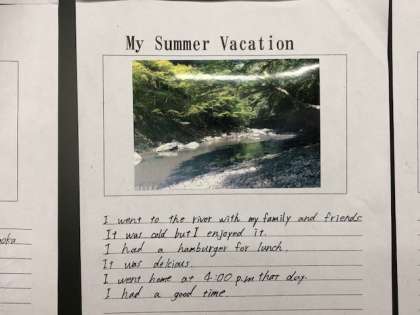 My Summer Vacation
I went to the river with my family and friends
It was cold but I enjoyed it.
I had a hamburger for lunch.
It was delcious.
I went home at 4:00 p.m that day.
I had a good time.